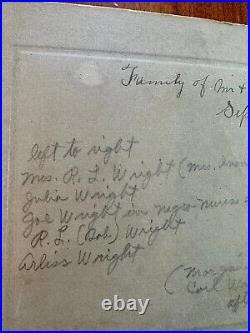 Family of Mr &
left to right
Mrs. R. L. Wright (Mrs.
Julia Wright
Joe Wright in negro nurse
R. L. (Bob) Wright
Arliss Wright
(
Carl